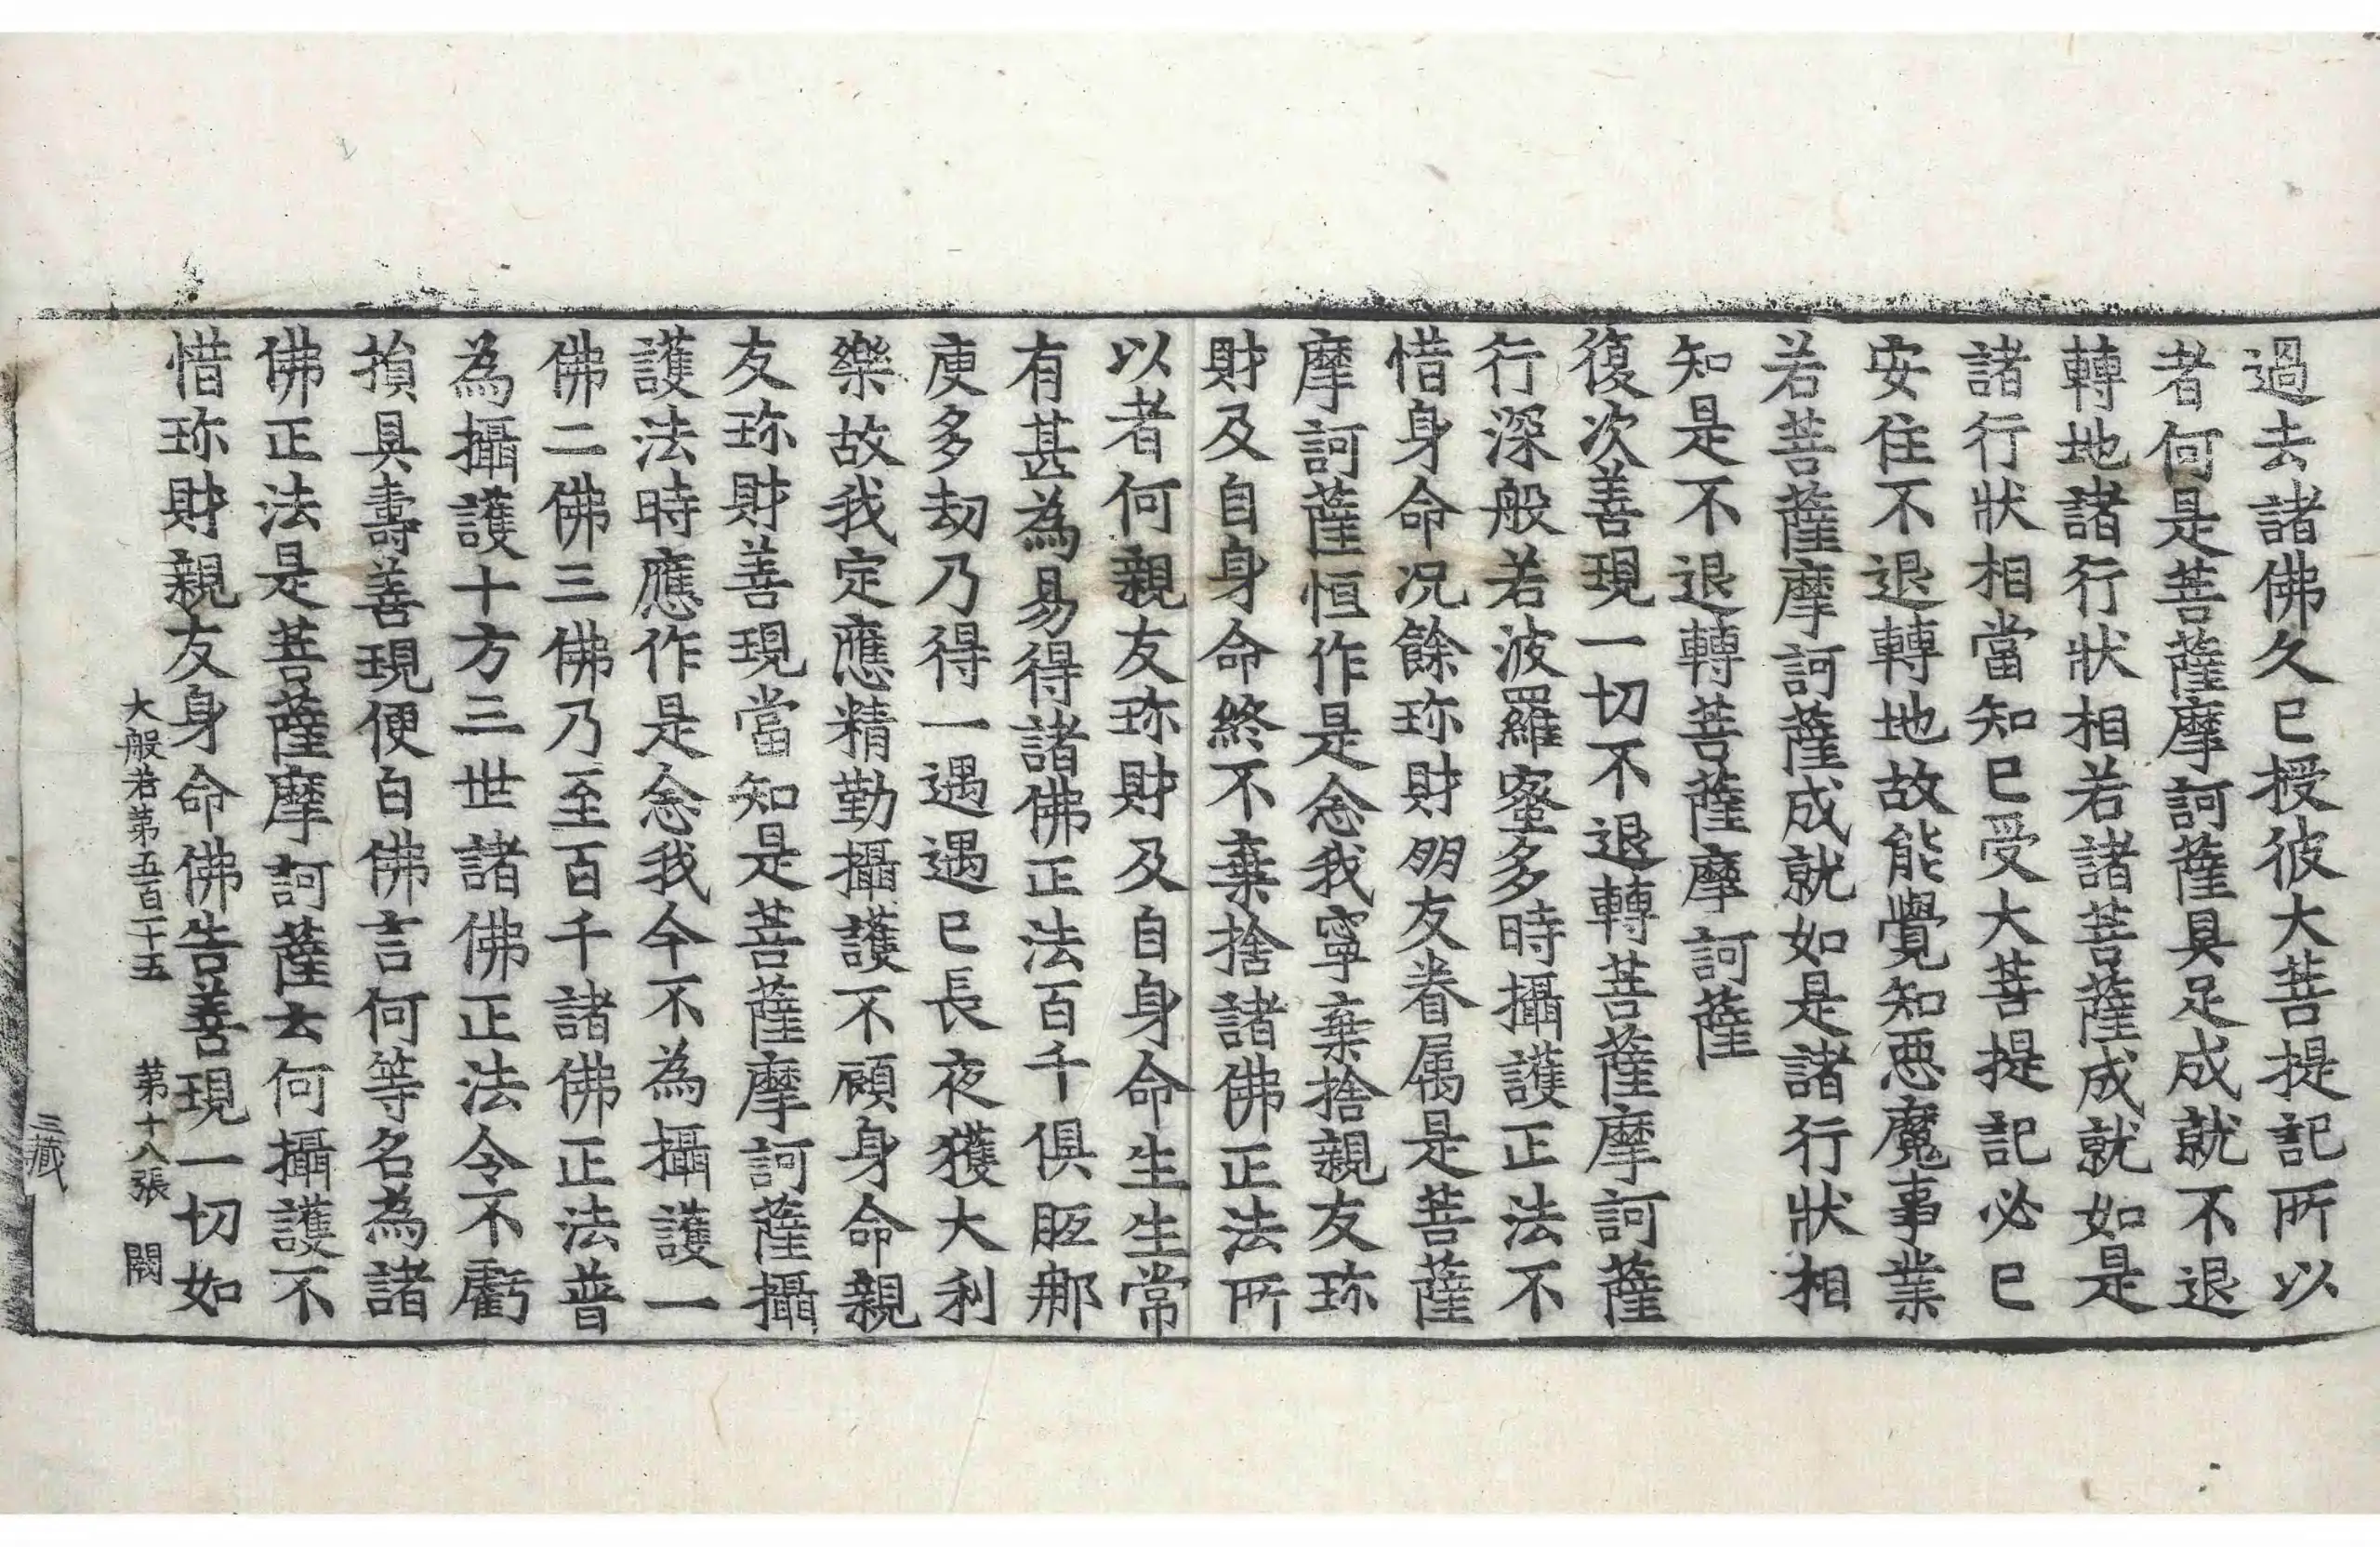 過去諸佛久已授彼大菩提記所以
者何是菩薩摩訶薩具足成就不退
轉地諸行狀相若諸菩薩成就如是
諸行狀相當知已受大菩提記必已
安住不退轉地故能覺知惡魔事業
若菩薩摩訶薩成就如是諸行狀相
知是不退轉菩薩摩訶薩
復次善現一切不退轉菩薩摩訶薩
行深般若波羅蜜多時攝護正法不
惜身命況餘珎財朋友眷属是菩薩
摩訶薩恒作是念我寧棄捨親友珎
財及自身命終不棄捨諸佛正法所
以者何親友珎財及自身命生生常
有甚為易得諸佛正法百千俱胝那
庾多劫乃得一遇遇已長夜獲大利
樂故我定應精勤攝護不顧身命親
友珎財善現當知是菩薩摩訶薩攝
護法時應作是念我今不為攝護一
佛二佛三佛乃至百千諸佛正法普
為攝護十方三世諸佛正法令不虧
損具壽善現便白佛言何等名為諸
佛正法是菩薩摩訶薩云何攝護不
惜珎財親友身命佛告善現一切如
大般若第五百二十五 第十八張 闕
三藏